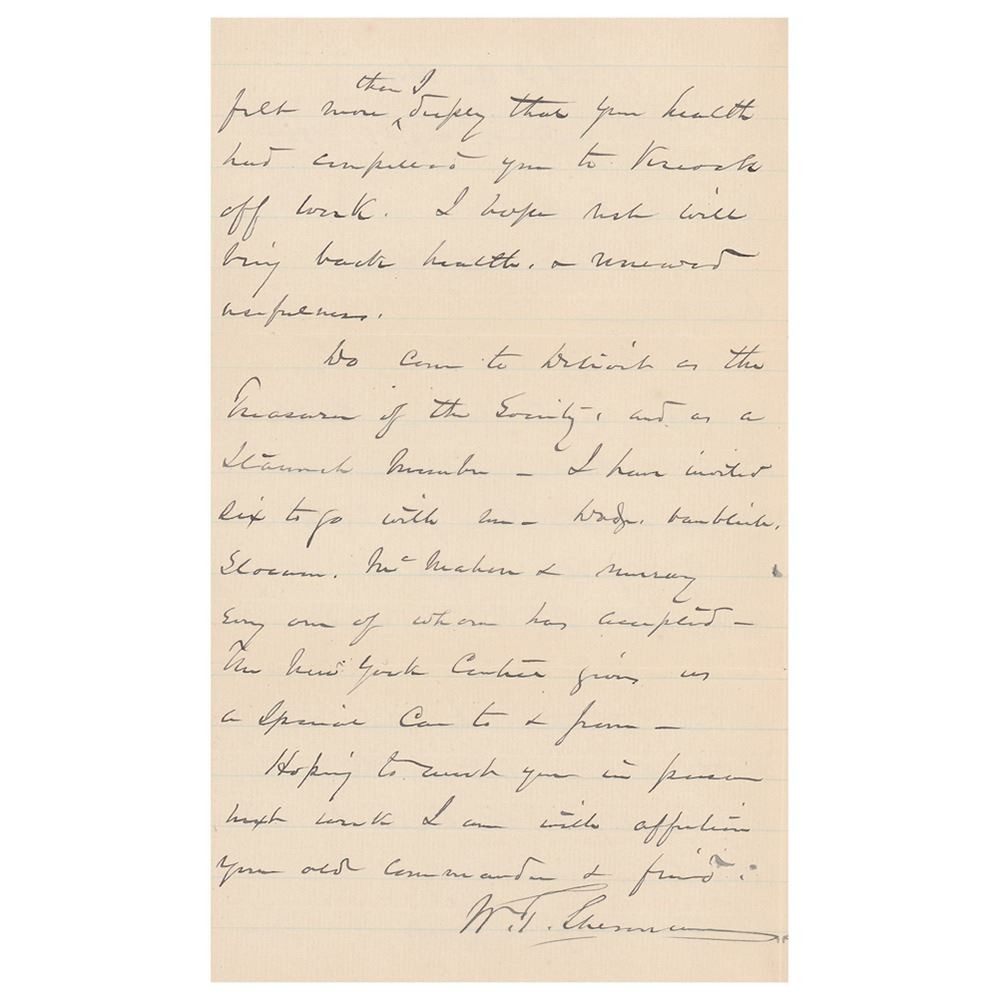 than I
felt more ^ deeply that your health
had compelled you to Knock
off work. I hope rest will
bring back health, & renewed
usefulness.
Do come to Detroit as the
Treasurer of the Society, and as a
Staunch Member – I have invited
Six to go with me – Dodge,
Slocum, McMahon & Murray
Every one of whom has accepted –
The New York Central gives us
a Special Car to & from –
Hoping to meet you in person
next week I am with affection
Your old Commander & friend.
W.T. Sherman